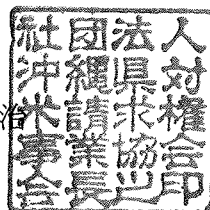 社団法人
沖縄県対
治
米請求権
事業協会
会長之印